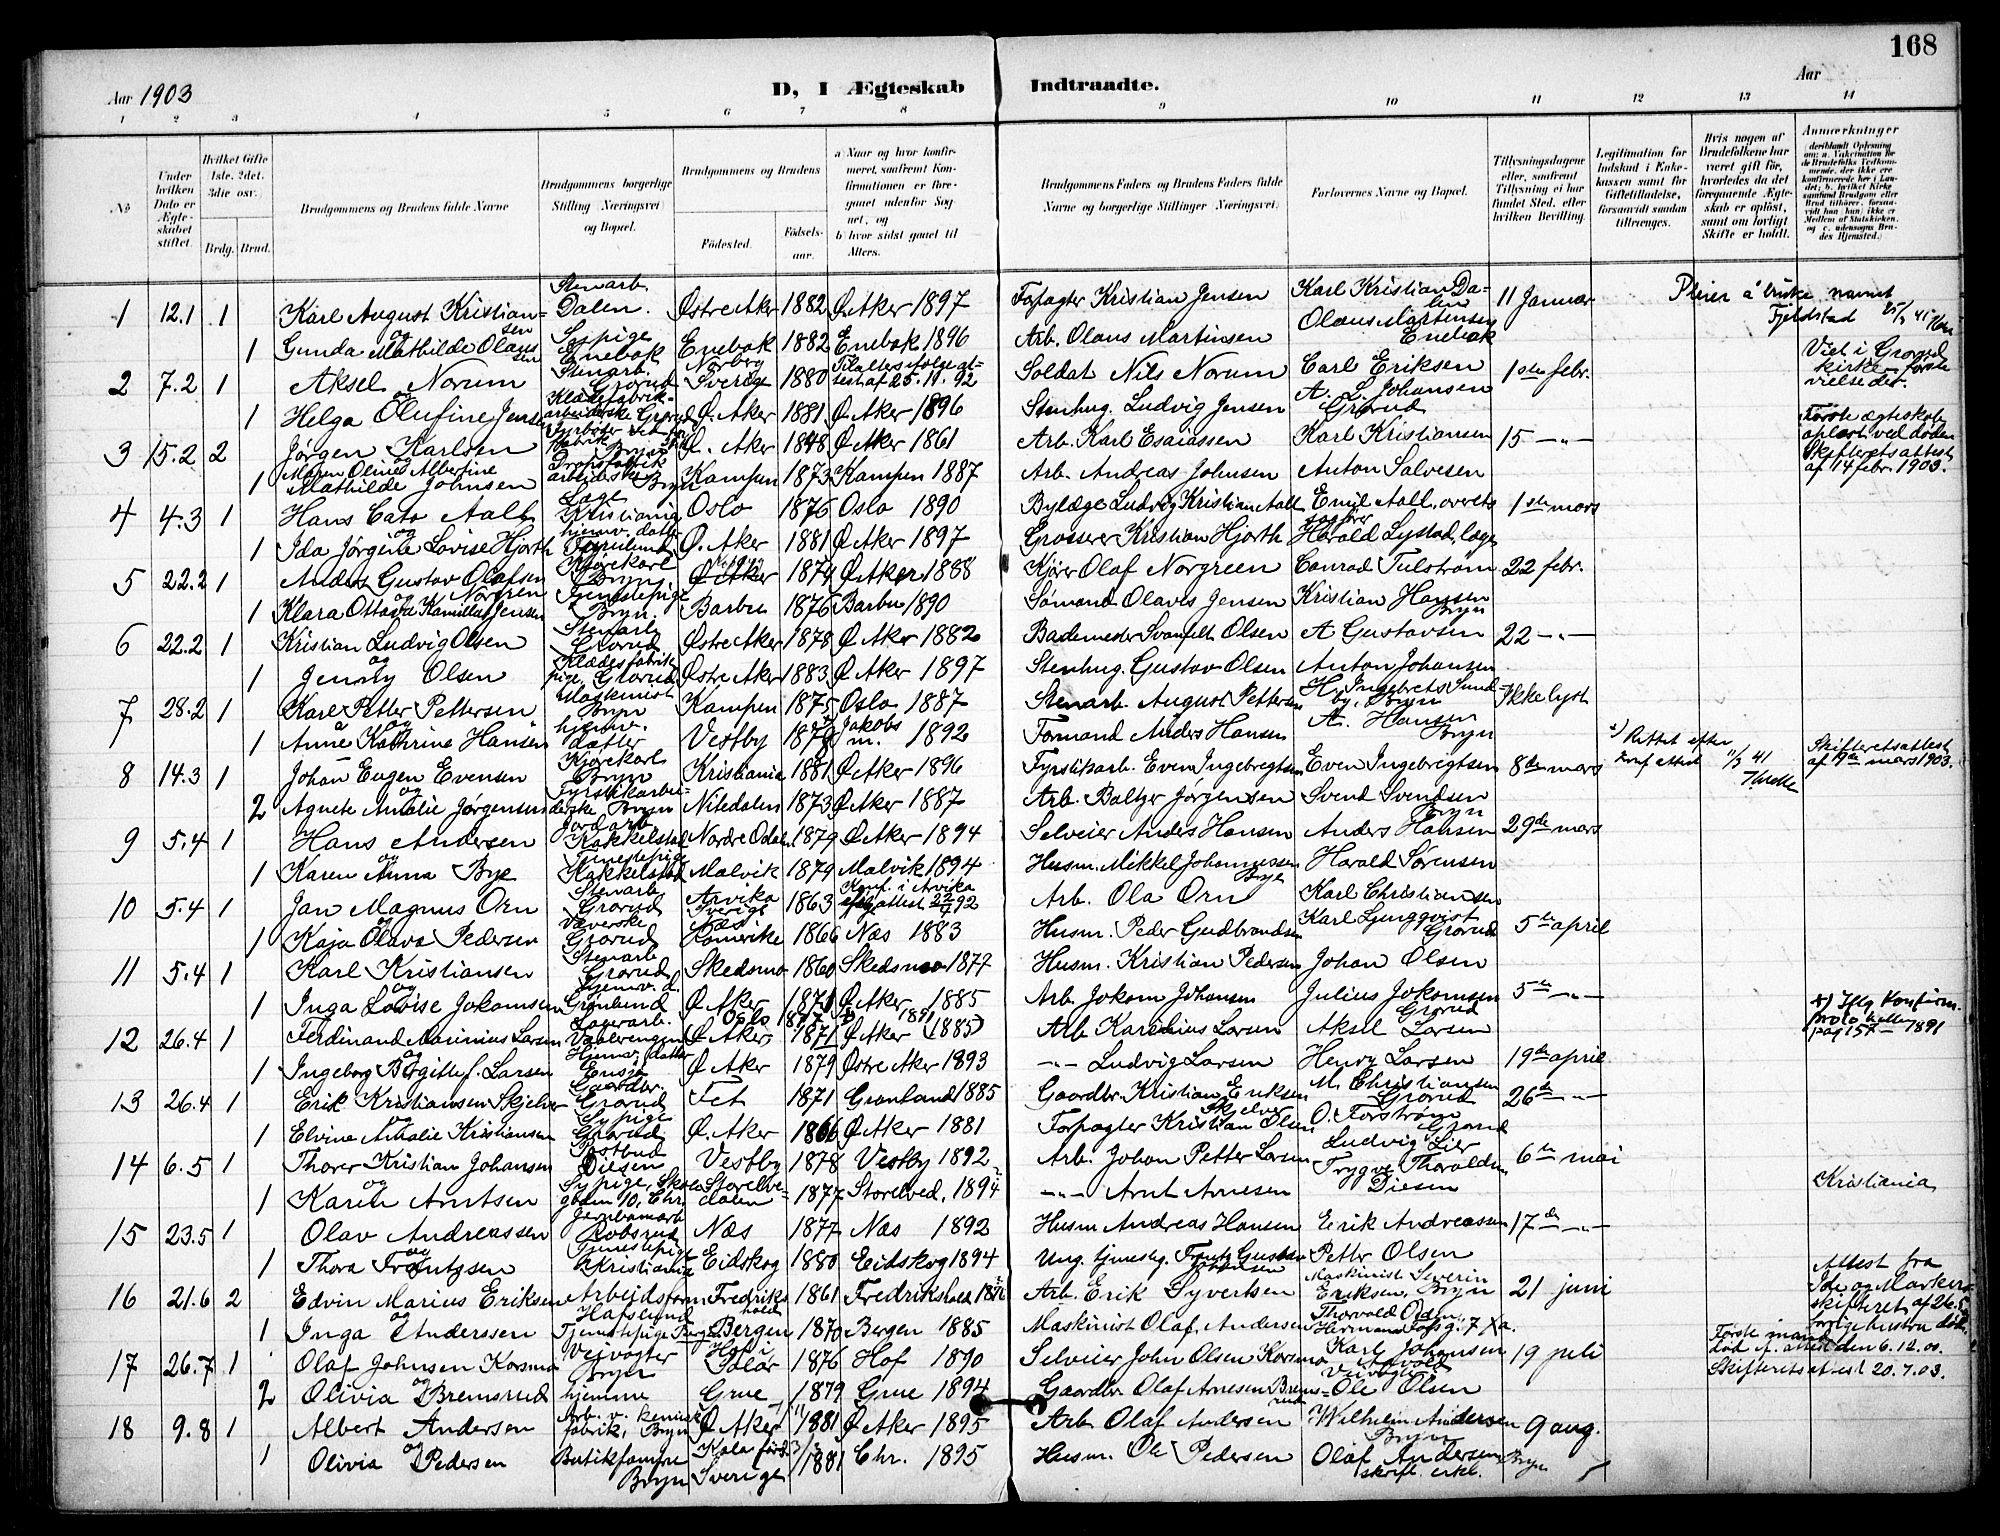 168
Aar 1903
D, I Ægteskab Indtraadte.
Aar
1 2 3 4 5 6 7 8 9 10 11 12 13 14
No
Under hvilken Dato er Ægteskabet stiftet.
Hvilket Gifte 1ste. 2det. 3die osv.
Brdg. Brud.
Brudgommens og Brudens fulde Navne
Brudgommens borgerlige Stilling (Næringsvei) og Bopæl.
Brudgommens og Brudens
Fødested.
Fødselsaar.
a) Naar og hvor konfirmeret, saafremt Konfirmationen er foregaaet udenfor Sognet, og
b) hvor sidst gaaet til Alters.
Brudgommens Faders og Brudens Faders fulde Navne og borgerlige Stillinger (Næringsvei)
Forlovernes Navne og Bopæl.
Tillysningsdagene eller, saafremt Tillysning ei har fundet Sted, efter hvilken Bevilling.
Legitimation for Indskud i Enkekassen samt for Giftetilladelse, forsaavidt saadan tiltrænges.
Hvis nogen af Brudefolkene har været gift før, hvorledes da det foregaaende Ægteskab er opløst, samt om lovligt Skifte er holdt.
Anmærkninger
1 12.1 1 Karl August Kristiansen og Stenarb. Dalen. Østre Aker 1882 Ø Aker 1897 Forpagter Kristian Jensen Karl Kristian Dalen 11 Januar Pleier å bruke navnet Fjeldstad
1 Gunda Mathilde Olaussen Sypige Enebak Enebak 1882 Enebak 1896 Arb. Olaus Martinsen Olaus Martensen Enebak
2 7.2 1 Aksel Norum og Stenarb. Grorud Norberg Sverige 1880 Tilalters ifølge attest af 25.11.92 Soldat Nils Norum Carl Eriksen 1ste febr. Viet i Grorud kirke – første vielse der.
1 Helga Olufine Jensen Klædefabrikarbeiderske Grorud Ø. Aker 1881 Ø Aker 1896 Stenhug. Ludvig Jensen A. L. Johansen Grorud
3 15.2 2 Jørgen Karlsen og Bryn Ø. Aker 1848 Ø Aker 1861 Arb. Karl Esaiassen Karl Kristiansen 15 –"– Første ægteskab opløst ved døden Skifteretsattest af 14 febr. 1903.
1 Maren Oline Albertine Mathilde Johnsen arbeiderske Bryn Kampen 1873 Kampen 1887 Arb. Andreas Johnsen Anton Salvesen
4 4.3 1 Hans Cato Aall og Læge Kristiania Oslo 1876 Oslo 1890 Bylæge Ludvig Kristian Aall Emil Aall, overretssagfører 1ste mars
1 Ida Jørgine Lovise Hjorth hjemv. datter Ø. Aker 1881 Ø Aker 1897 Grosserer Kristian Hjorth Harald Lystad, læge
5 22.2 1 Anders Gustav Olafsen Norgren og Kjørekarl Bryn Ø Aker 1874 Ø Aker 1888 Kjører Olaf Norgreen Conrad Tulstrøm 22 febr.
1 Klara Ottava Kamilla Jensen Tjenestepige Bryn. Barbu 1876 Barbu 1890 Sømand Olaves Jensen Kristian Hansen Bryn
6 22.2 1 Kristian Ludvig Olsen og Stenarb. Grorud Østre Aker 1878 Ø Aker 1882 Bademester Svanfelt Olsen A Gustavsen 22 –"–
1 Jenny Olsen Klædesfabrikpige, Grorud Østre Aker 1883 Ø Aker 1897 Stenhug. Gustav Olsen Anton Johansen
7 28.2 1 Karl Petter Pettersen og Maskinist Bryn Kampen 1875 Oslo 1887 Stenarb. August Pettersen H. Ingebretsen Bryn Ikke lyst
1 Anne Kathrine Hansen hjemv. datter Vestby 1878 Jakobs m. 1892 Formand Anders Hansen A. Hansen Bryn
8 14.3 1 Johan Eugen Evensen og Kjørekarl Bryn Kristiania 1881 Ø Aker 1896 Fyrstikarb. Even Ingebregtsen Even Ingebrigtsen 8de mars Rettet efter 11/3 41 Skifteretsattest af 9de mars 1903.
2 Agnete Amalie Jørgensen Fyrstikarbeiderske, Bryn Nitedalen 1873 Ø Aker 1887 Arb. Baltzer Jørgensen Svend Svendsen Bryn
9 5.4 1 Hans Andersen og Jordarb. Kakkelstad Nordre Odalen 1879 Ø Aker 1894 Selveier Anders Hansen Anders Hansen 29de mars
1 Karen Anna Bye Tjenestepige Kakkelstad Malvik 1879 Malvik 1894 Husm. Mikkel Johannessen Bye Harald Sørensen
10 5.4 1 Jan Magnus Orn og Stenarb. Grorud Arvika Sverige 1863 Konf. i Arvika attest 22/7 92 Arb. Ola Orn Karl Christiansen
1 Kaja Olava Pedersen Væverske Grorud Næs Romerike 1866 Næs 1883 Husm. Peder Gudbrandsen Karl Ljungqvist Grorud 5te april
11 5.4 1 Karl Kristiansen og Stenarb. Grorud Skedsmo 1860 Skedsmo 1877 Husm. Kristian Pedersen Johan Olsen
1 Inga Lovise Jokomsen hjemv. d. Grønlund Ø Aker 1871 Ø Aker 1885 Arb. Jokom Johansen Julius Jokomsen Grorud 5te –"–
12 26.4 1 Ferdinand Marinius Larsen og Lagerarb. Vaalerengen Oslo Ø Aker 1877 1871 Ø Aker 1891 (1885) Arb. Karelius Larsen Aksel Larsen x) Iflg Konfirm. protokollen pag 157 – 1891
1 Ingeborg Birgitte f. Larsen Hjemv. datter Ensjø Ø Aker 1879 Østre Aker 1893 –"– Ludvig Larsen Henry Larsen 19de april
13 26.4 1 Erik Kristiansen Skjelver Gaardbr. Grorud Fet 1871 Grønland 1885 Gaardbr. Kristian Eriksen Skjelver M. Christiansen Grorud 26de –"–
1 Elvine Nathalie Kristiansen Sypige Grorud Ø. Aker 1866 Ø Aker 1881 Forpagter Kristian Olsen O. Forstrøm Grorud
14 6.5 1 Thorer Kristian Johansen og Postbud Diesen Vestby 1878 Vestby 1892 Arb. Johan Petter Larsen Ludvig Lier 6te mai
1 Karen Arntsen Sypige, Skolegaden 10, Chr. Storelvedalen 1877 Storelved. 1894 –"– Arnt Arnesen Trygve Thoraldsen Diesen Kristiania
15 23.5 1 Olav Andreassen og Jernbanearb. Robsrud Næs 1877 Næs 1892 Husm. Andreas Hansen Erik Andreassen 17de –"–
1 Thora Frantzsen Tjenestepige Kristiania Eidskog 1880 Eidskog 1894 Ung. tjenestg. Frantz Gustav Johansen Petter Olsen
16 21.6 2 Edvin Marius Eriksen og Arbeidsform. Hafslund Fredrikshald 1861 Fredrikshald 1876 Arb. Erik Syvertsen Maskinist Severin Eriksen, Bryn 21 juni Attest fra Ide og Marker skifteret af 26.5
1 Inga Anderssen Tjenestepige Bryn Bergen 1870 Bergen 1885 Maskinist Olaf Andersen Thorvald Olsen, Hermans Fossg. 7 Xa.
17 26.7 1 Olaf Johnsen Korsmo og Veivogter Bryn Hof i Solør 1876 Hof 1890 Selveier John Olsen Korsmo Karl Johansen Veivogter 19 juli Første mand død if. attest den 6.12.01. Skifteretsattest 20.7.03.
2 Olivia Bremsrud hjemme Grue 1879 Grue 1894 Gaardbr. Olaf Arnesen Bremsrud Ole Olsen
18 9.8 1 Albert Andersen og Arb. v. kemisk fabrik, Bryn Ø Aker 1881 Ø Aker 1895 Arb. Olaf Andersen Wilhelm Andersen Bryn 9 aug.
1 Olivia Pedersen Butikjomfru Bryn Kola Sverige 1881 Chr. 1895 Husm. Ole Pedersen Olaf Andersen Bryn